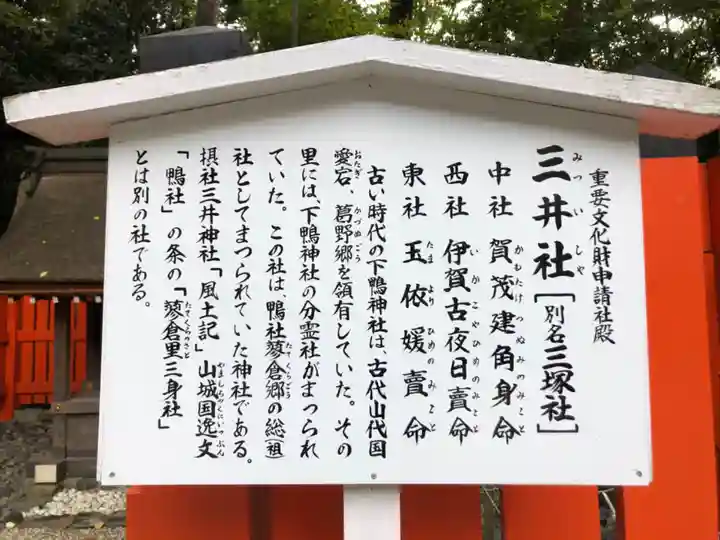 重要文化財申請社殿
三井社［別名三塚社］
みついしゃ
中社 賀茂建角身命
かもたけつぬみのみこと
西社 伊賀古夜日賣命
いかこやひめのみこと
東社 玉依媛賣命
たまよりひめのみこと
古い時代の下鴨神社は、古代山代国
愛宕、葛野郷を領有していた。その
おたぎ かづぬごう
里には、下鴨神社の分霊社がまつられ
ていた。この社は、鴨社蓼倉郷の総(祖)
たてくらごう
社としてまつられていた神社である。
摂社三井神社「風土記」山城国逸文
やましろくにいつぶん
「鴨社」の条の「蓼倉里三身社」
たてくらのさと
とは別の社である。